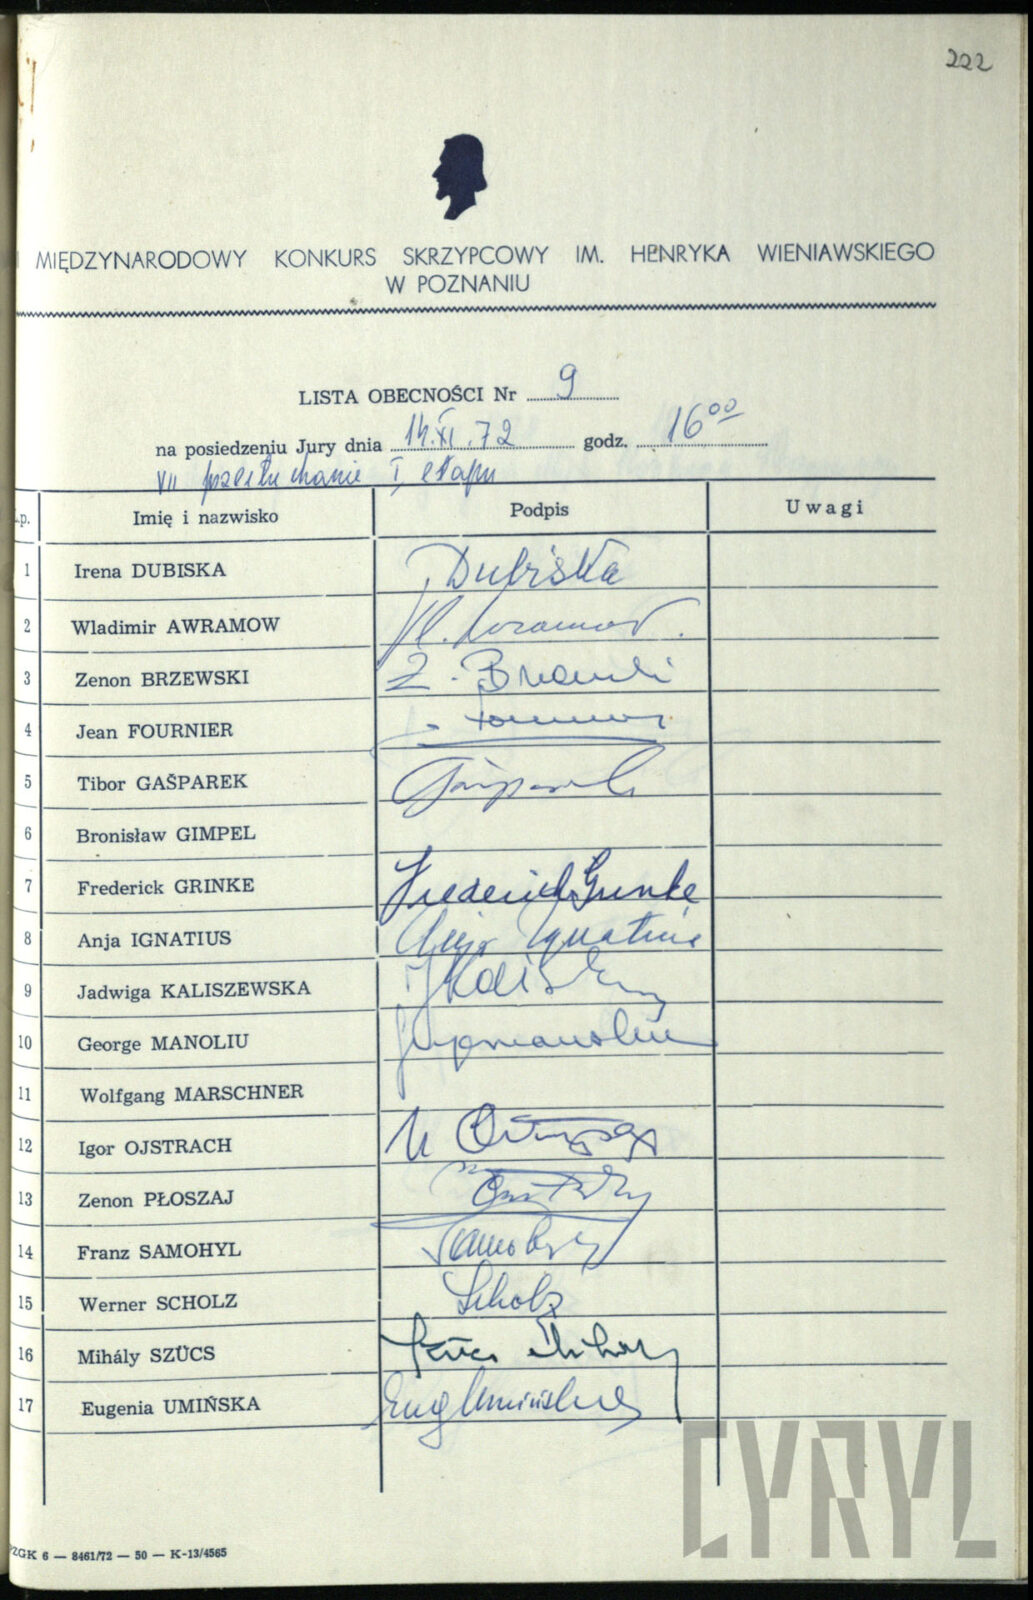 222
MIĘDZYNARODOWY KONKURS SKRZYPCOWY IM. HENRYKA WIENIAWSKIEGO
W POZNANIU
LISTA OBECNOŚCI Nr 9
na posiedzeniu Jury dnia 14.XI.72 godz. 16⁰⁰
VII przesłuchanie I etapu
Lp. Imię i nazwisko Podpis Uwagi
1 Irena DUBISKA Dubiska
2 Wladimir AWRAMOW
3 Zenon BRZEWSKI Z. Brzewski
4 Jean FOURNIER
5 Tibor GAŠPAREK Gašparek
6 Bronisław GIMPEL
7 Frederick GRINKE Frederick Grinke
8 Anja IGNATIUS Anja Ignatius
9 Jadwiga KALISZEWSKA
10 George MANOLIU
11 Wolfgang MARSCHNER
12 Igor OJSTRACH
13 Zenon PŁOSZAJ
14 Franz SAMOHYL Samohyl
15 Werner SCHOLZ Scholz
16 Mihály SZÜCS Szücs Mihály
17 Eugenia UMIŃSKA Eug Umińska
PZGK 6 — 8461/72 — 50 — K-13/4565
CYRYL